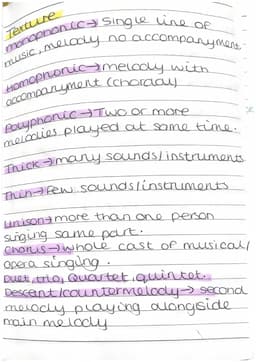 Texture
monophonic → single line of
music, melody no accompanyment
Homophonic → melody with
accompanyment (chordal)
Polyphonic → Two or more
melodies played at same time.
Thick → many sounds/instruments
Thin → few sounds/instruments
unison → more than one person
singing same part.
Chorus → whole cast of musical/
opera singing.
Duet, trio, Quartet, quintet.
Descent/countermelody → second
melody playing alongside
main melody